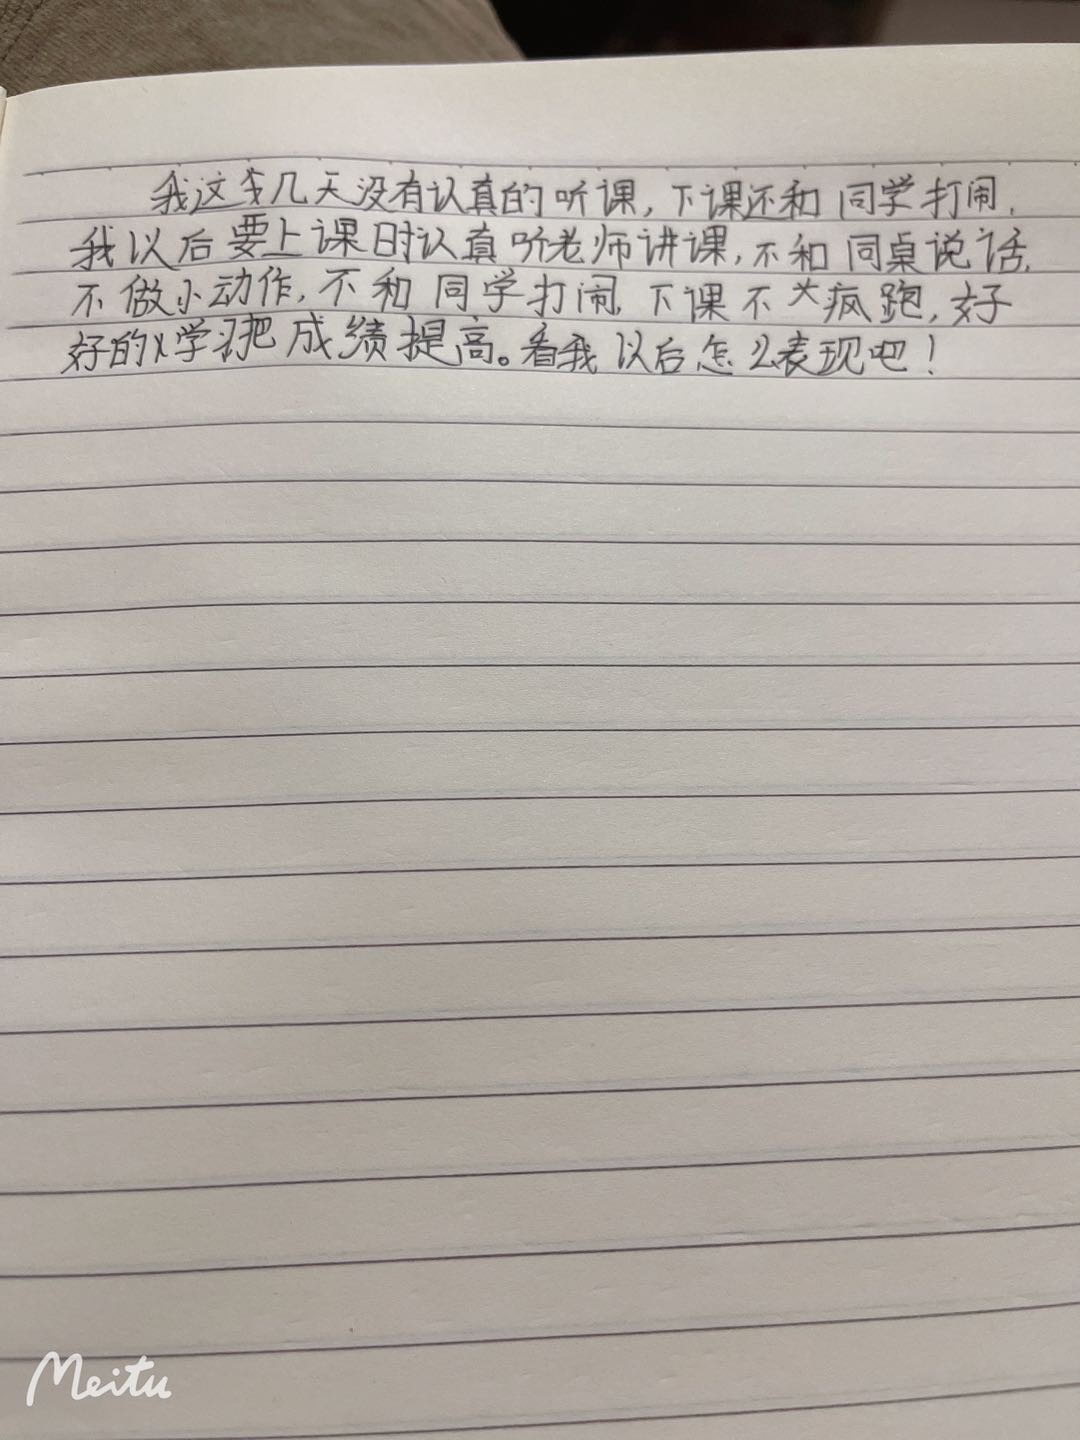 我这几天没有认真的听课,下课还和同学打闹.
我以后要上课时认真听老师讲课,不和同桌说话,
不做小动作,不和同学打闹,下课不大疯跑,好
好的学习把成绩提高。看我以后怎么表现吧!
Meitu